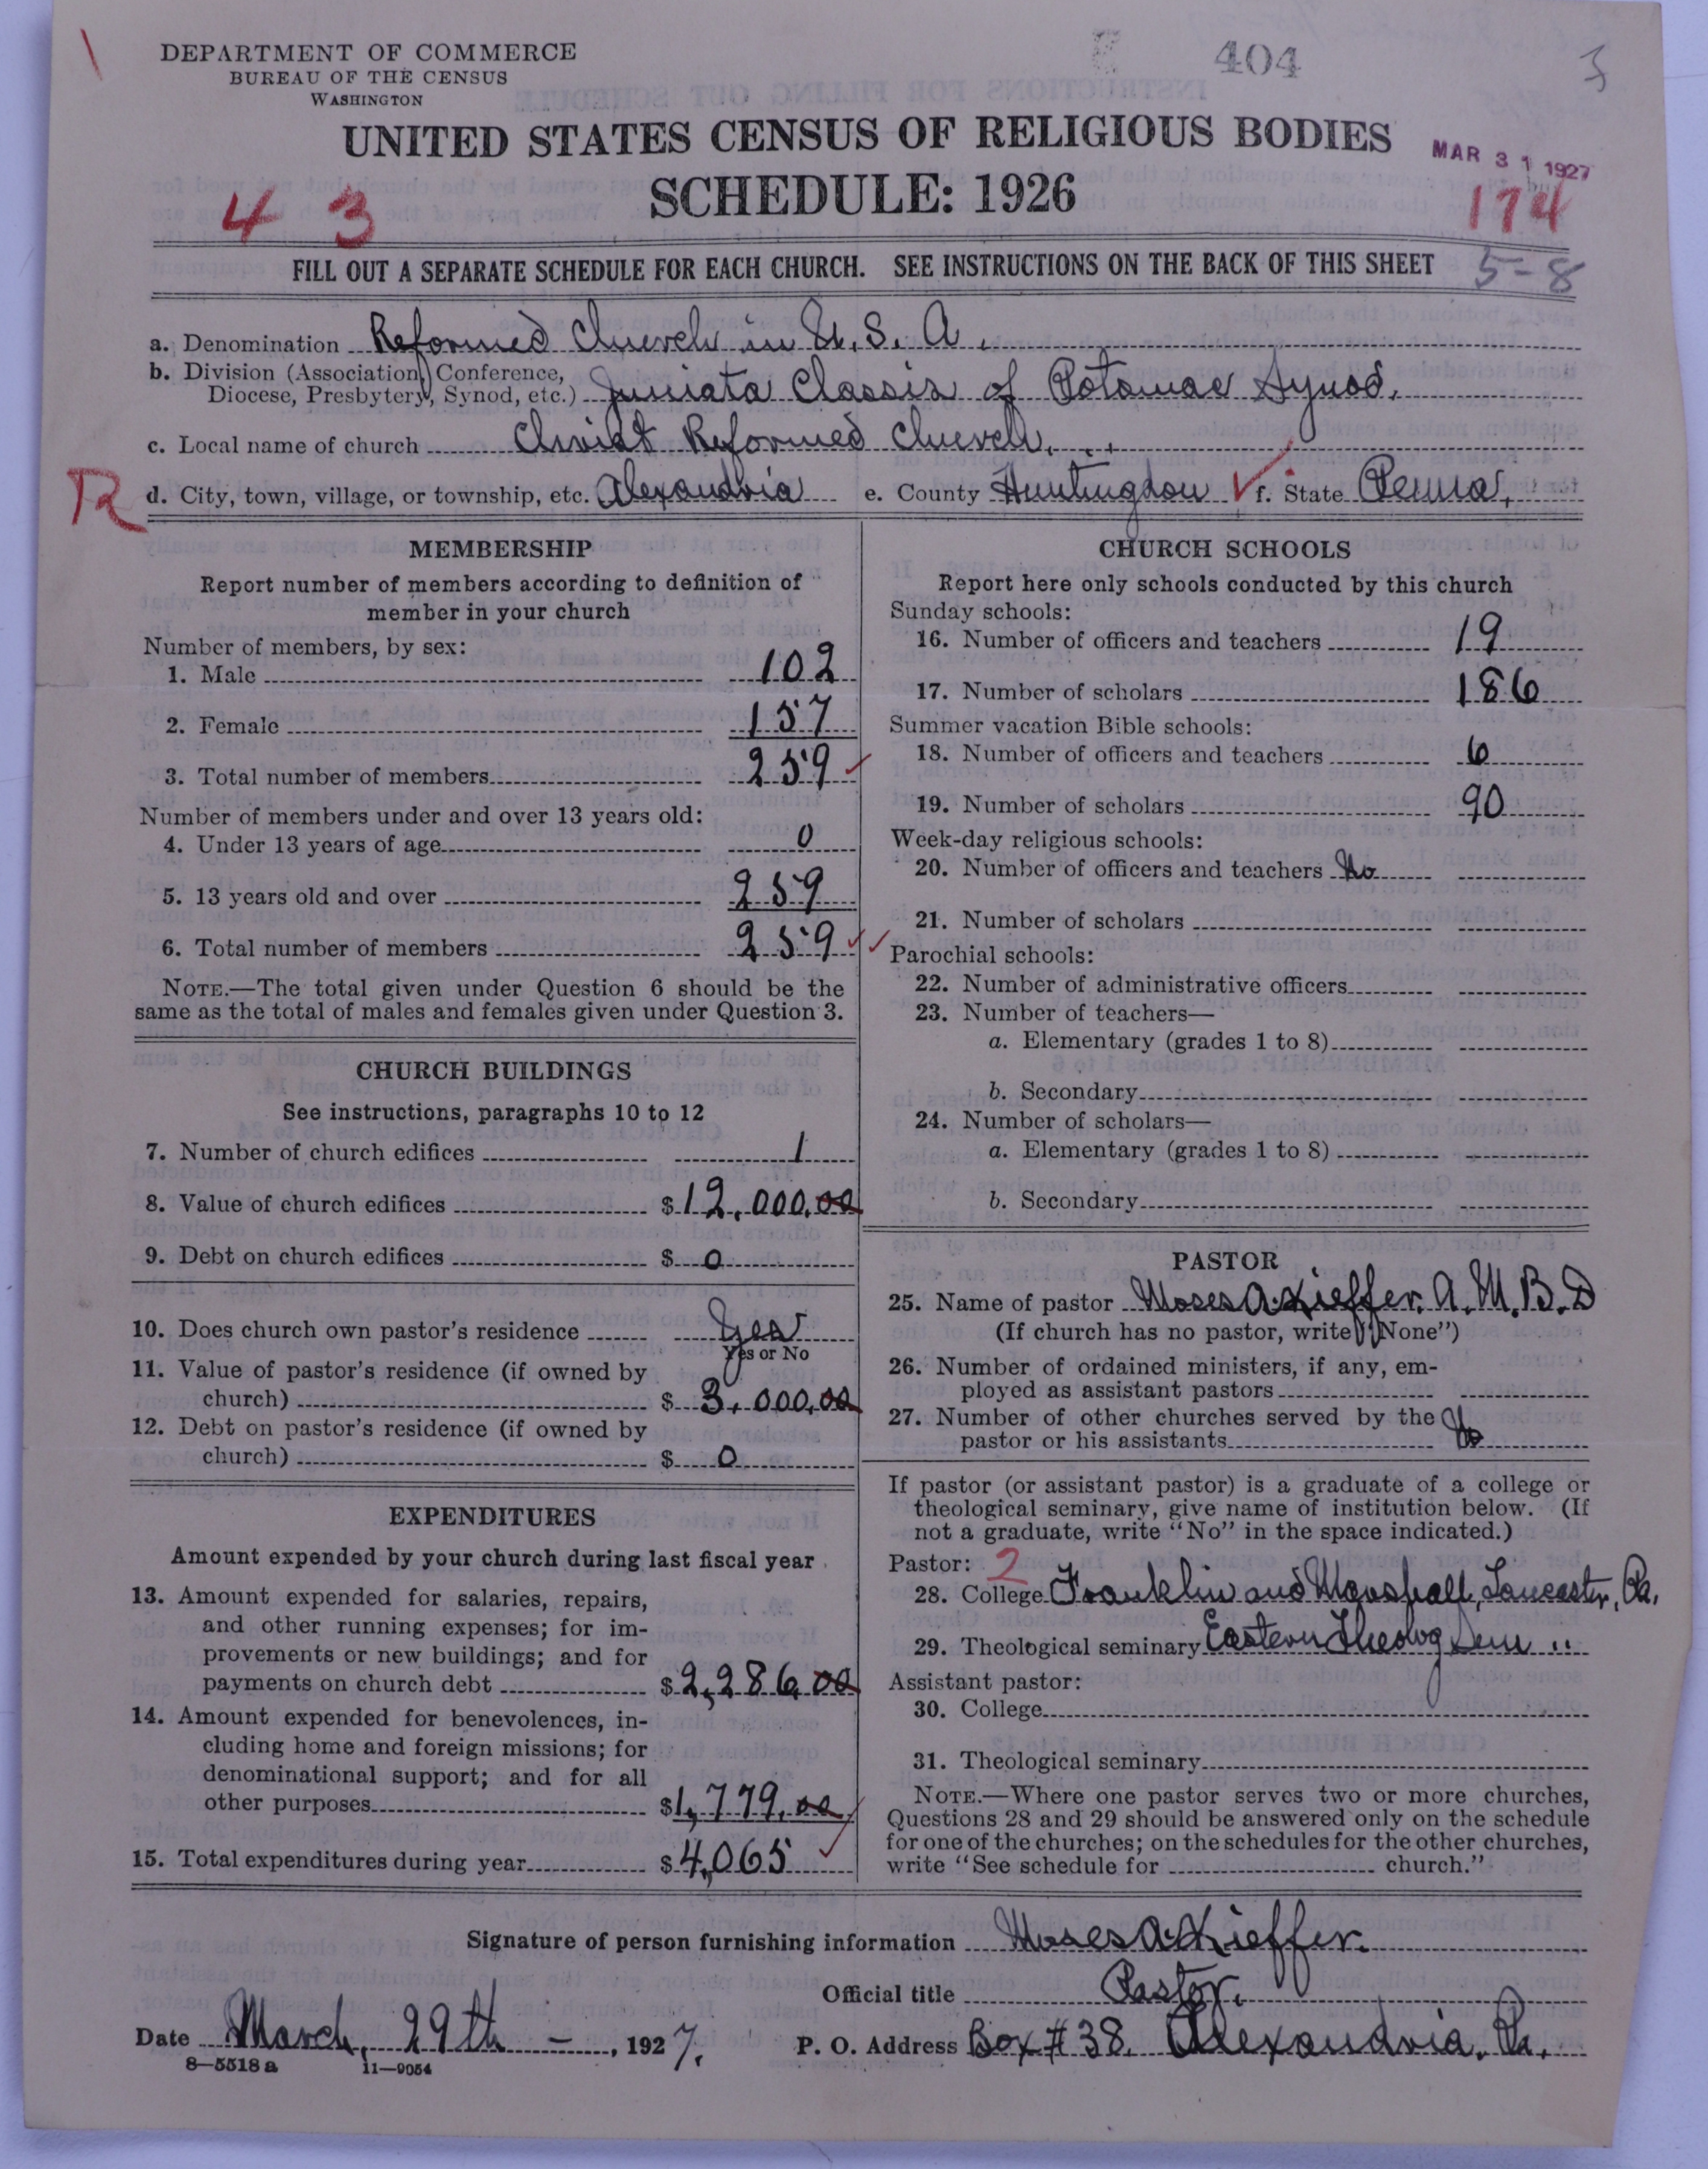 DEPARTMENT OF COMMERCE
BUREAU OF THE CENSUS
WASHINGTON
404
3
UNITED STATES CENSUS OF RELIGIOUS BODIES
MAR 31 1927
SCHEDULE: 1926
4 3
174
FILL OUT A SEPARATE SCHEDULE FOR EACH CHURCH. SEE INSTRUCTIONS ON THE BACK OF THIS SHEET
5-8
a. Denomination Reformed Church in U.S.A.
b. Division (Association, Conference,
Diocese, Presbytery, Synod, etc.) Juniata Classis of Potomac Synod.
c. Local name of church Christ Reformed Church.
R
d. City, town, village, or township, etc. Alexandria e. County Huntingdon f. State Penna.
MEMBERSHIP
Report number of members according to definition of
member in your church
Number of members, by sex:
1. Male 102
2. Female 157
3. Total number of members 259
Number of members under and over 13 years old:
4. Under 13 years of age 0
5. 13 years old and over 259
6. Total number of members 259
NOTE.—The total given under Question 6 should be the
same as the total of males and females given under Question 3.
CHURCH BUILDINGS
See instructions, paragraphs 10 to 12
7. Number of church edifices 1
8. Value of church edifices $12,000.00
9. Debt on church edifices $ 0
10. Does church own pastor's residence Yes
Yes or No
11. Value of pastor's residence (if owned by
church) $ 3,000.00
12. Debt on pastor's residence (if owned by
church) $ 0
EXPENDITURES
Amount expended by your church during last fiscal year
13. Amount expended for salaries, repairs,
and other running expenses; for im-
provements or new buildings; and for
payments on church debt $2,286.00
14. Amount expended for benevolences, in-
cluding home and foreign missions; for
denominational support; and for all
other purposes $1,779.00
15. Total expenditures during year $4,065
CHURCH SCHOOLS
Report here only schools conducted by this church
Sunday schools:
16. Number of officers and teachers 19
17. Number of scholars 186
Summer vacation Bible schools:
18. Number of officers and teachers 6
19. Number of scholars 90
Week-day religious schools:
20. Number of officers and teachers No
21. Number of scholars
Parochial schools:
22. Number of administrative officers
23. Number of teachers—
a. Elementary (grades 1 to 8)
b. Secondary
24. Number of scholars—
a. Elementary (grades 1 to 8)
b. Secondary
PASTOR
25. Name of pastor Moses A. Kieffer. A.M.B.D
(If church has no pastor, write "None")
26. Number of ordained ministers, if any, em-
ployed as assistant pastors
27. Number of other churches served by the
pastor or his assistants No
If pastor (or assistant pastor) is a graduate of a college or
theological seminary, give name of institution below. (If
not a graduate, write "No" in the space indicated.)
Pastor: 2
28. College Franklin and Marshall, Lancaster, Pa.
29. Theological seminary Eastern Theolog Sem "
Assistant pastor:
30. College
31. Theological seminary
NOTE.—Where one pastor serves two or more churches,
Questions 28 and 29 should be answered only on the schedule
for one of the churches; on the schedules for the other churches,
write "See schedule for church."
Signature of person furnishing information Moses A. Kieffer.
Official title Pastor.
Date March, 29th - , 1927. P. O. Address Box #38. Alexandria. Pa.
8—5518 a 11—9054